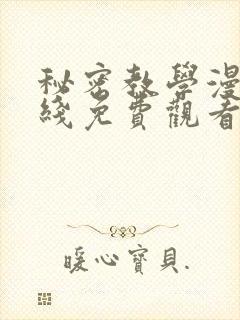 秘密教學漫
綫免費觀看
暖心寶貝.